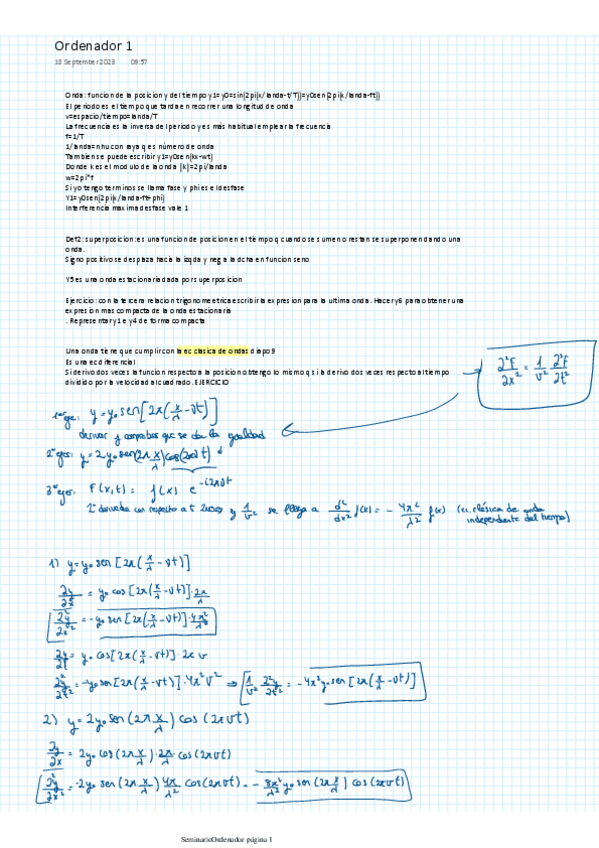 Ordenador 1
18 September 2023 09:57
Onda: funcion de la posicion y del tiempo y1=y0=sin(2pi(x/landa-t/T))=y0sen(2pi(x/landa-ft))
El periodo es el tiempo que tarda en recorrer una longitud de onda
v=espacio/tiempo=landa/T
La frecuencia es la inversa del periodo y es más habitual emplear la frecuencia
f=1/T
1/landa=nhu con raya q es número de onda
Tambien se puede escribir y1=y0sen(kx-wt)
Donde k es el modulo de la onda |k|=2pi/landa
w=2pi*f
Si yo tengo terminos se llama fase y phi es el desfase
Y1=y0sen(2pi(x/landa-ft+phi)
Interferencia maxima desfase vale 1
Def2: superposicion: es una funcion de posicion en el tiempo q cuando se sumen o restan se superponen dando una
onda.
Signo positivo se desplaza hacia la izqda y nega la dcha en funcion seno
Y5 es una onda estacionaria dada por superposicion
Ejercicio: con la tercera relacion trigonometrica escribir la expresion para la ultima onda. Hacer y6 para obtener una
expresion mas compacta de la onda estacionaria
. Representar y1 e y4 de forma compacta
Una onda tiene que cumplir con la ec clasica de ondas diapo 9
Es una ec diferencial
Si derivo dos veces la funcion respecto a la posicion obtengo lo mismo q si la derivo dos veces respecto al tiempo
dividido por la velocidad al cuadrado. EJERCICIO
∂²F/∂x² = 1/v² ∂²F/∂t²
1er ejer: y = y₀ sen[2π(x/λ - νt)]
derivar y comprobar que se da la igualdad
2º ejer: y = 2y₀ sen(2π x/λ) cos(2πνt)
3er ejer: F(x,t) = f(x) e^-i2πνt
2ª derivada con respecto a t 2 veces y 1/v² se llega a d²/dx² f(x) = - 4π²/λ² f(x) (ec clásica de onda
independiente del tiempo)
1) y = y₀ sen[2π(x/λ - νt)]
∂y/∂x = y₀ cos[2π(x/λ - νt)]·2π/λ
∂²y/∂x² = -y₀ sen[2π(x/λ - νt)]·4π²/λ²
∂y/∂t = y₀ cos[2π(x/λ - νt)]·2π ν
∂²y/∂t² = -y₀ sen[2π(x/λ - νt)]·4π²ν² ⇒ 1/v² ∂²y/∂t² = -4π²y₀ sen[2π(x/λ - νt)]
2) y = 2y₀ sen(2π x/λ) cos(2πνt)
∂y/∂x = 2y₀ cos(2π x/λ)·2π/λ cos(2πνt)
∂²y/∂x² = -2y₀ sen(2π x/λ) 4π/λ² cos(2πνt) = - 8π²/λ² y₀ sen(2π x/λ) cos(2πνt)
SeminarioOrdenador página 1